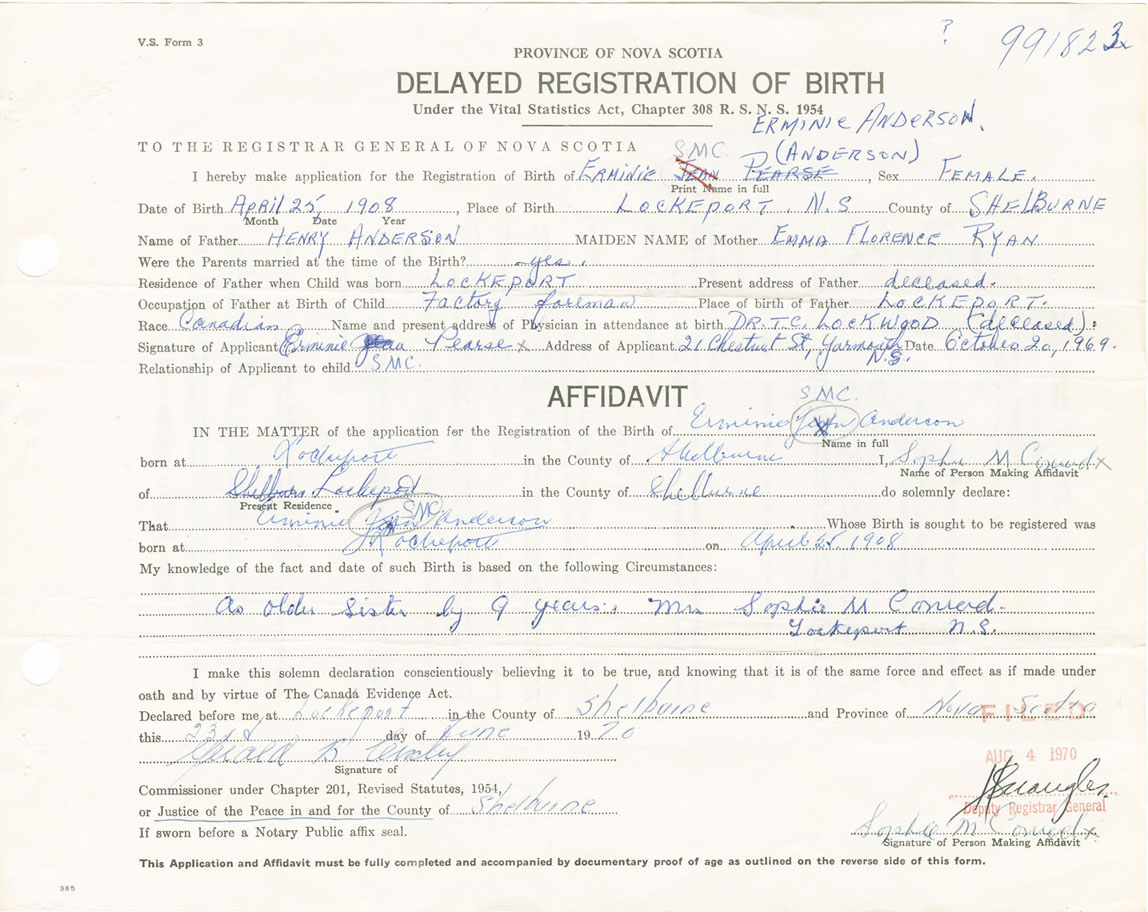 V.S. Form 3
?
991823
PROVINCE OF NOVA SCOTIA
DELAYED REGISTRATION OF BIRTH
Under the Vital Statistics Act, Chapter 308 R. S. N. S. 1954
ERMINIE ANDERSON.
TO THE REGISTRAR GENERAL OF NOVA SCOTIA SMC. (ANDERSON)
I hereby make application for the Registration of Birth of ERMINIE JEAN PEARSE, Sex FEMALE.
Print Name in full
Date of Birth APRIL 25, 1908, Place of Birth LOCKEPORT. N.S County of SHELBURNE
Month Date Year
Name of Father HENRY ANDERSON MAIDEN NAME of Mother EMMA FLORENCE RYAN
Were the Parents married at the time of the Birth? yes.
Residence of Father when Child was born LOCKEPORT Present address of Father deceased.
Occupation of Father at Birth of Child Factory foreman Place of birth of Father LOCKEPORT.
Race Canadian Name and present address of Physician in attendance at birth DR. T.C. LOCKWOOD (deceased).
Signature of Applicant Erminie Jean Pearse x Address of Applicant 21 Chestnut St, Yarmouth N.S. Date October 20, 1969.
Relationship of Applicant to child SMC.
AFFIDAVIT
SMC.
IN THE MATTER of the application for the Registration of the Birth of Erminie Anderson
Name in full
born at Lockeport in the County of Shelburne I, Sophie M Conrad x
Name of Person Making Affidavit
of Lockeport in the County of Shelburne do solemnly declare:
Present Residence
SMC
That Erminie Anderson Whose Birth is sought to be registered was
born at Lockeport on April 25. 1908
My knowledge of the fact and date of such Birth is based on the following Circumstances:
As older sister by 9 years. Mrs Sophie M Conrad.
Lockeport N.S.
I make this solemn declaration conscientiously believing it to be true, and knowing that it is of the same force and effect as if made under
oath and by virtue of The Canada Evidence Act.
Declared before me at Lockeport in the County of Shelburne and Province of Nova Scotia
FILED
this 23rd day of June 1970
AUG 4 1970
Gerald B
Signature of
Commissioner under Chapter 201, Revised Statutes, 1954,
or Justice of the Peace in and for the County of Shelburne
Deputy Registrar General
If sworn before a Notary Public affix seal.
Sophie M Conrad x
Signature of Person Making Affidavit
This Application and Affidavit must be fully completed and accompanied by documentary proof of age as outlined on the reverse side of this form.
385